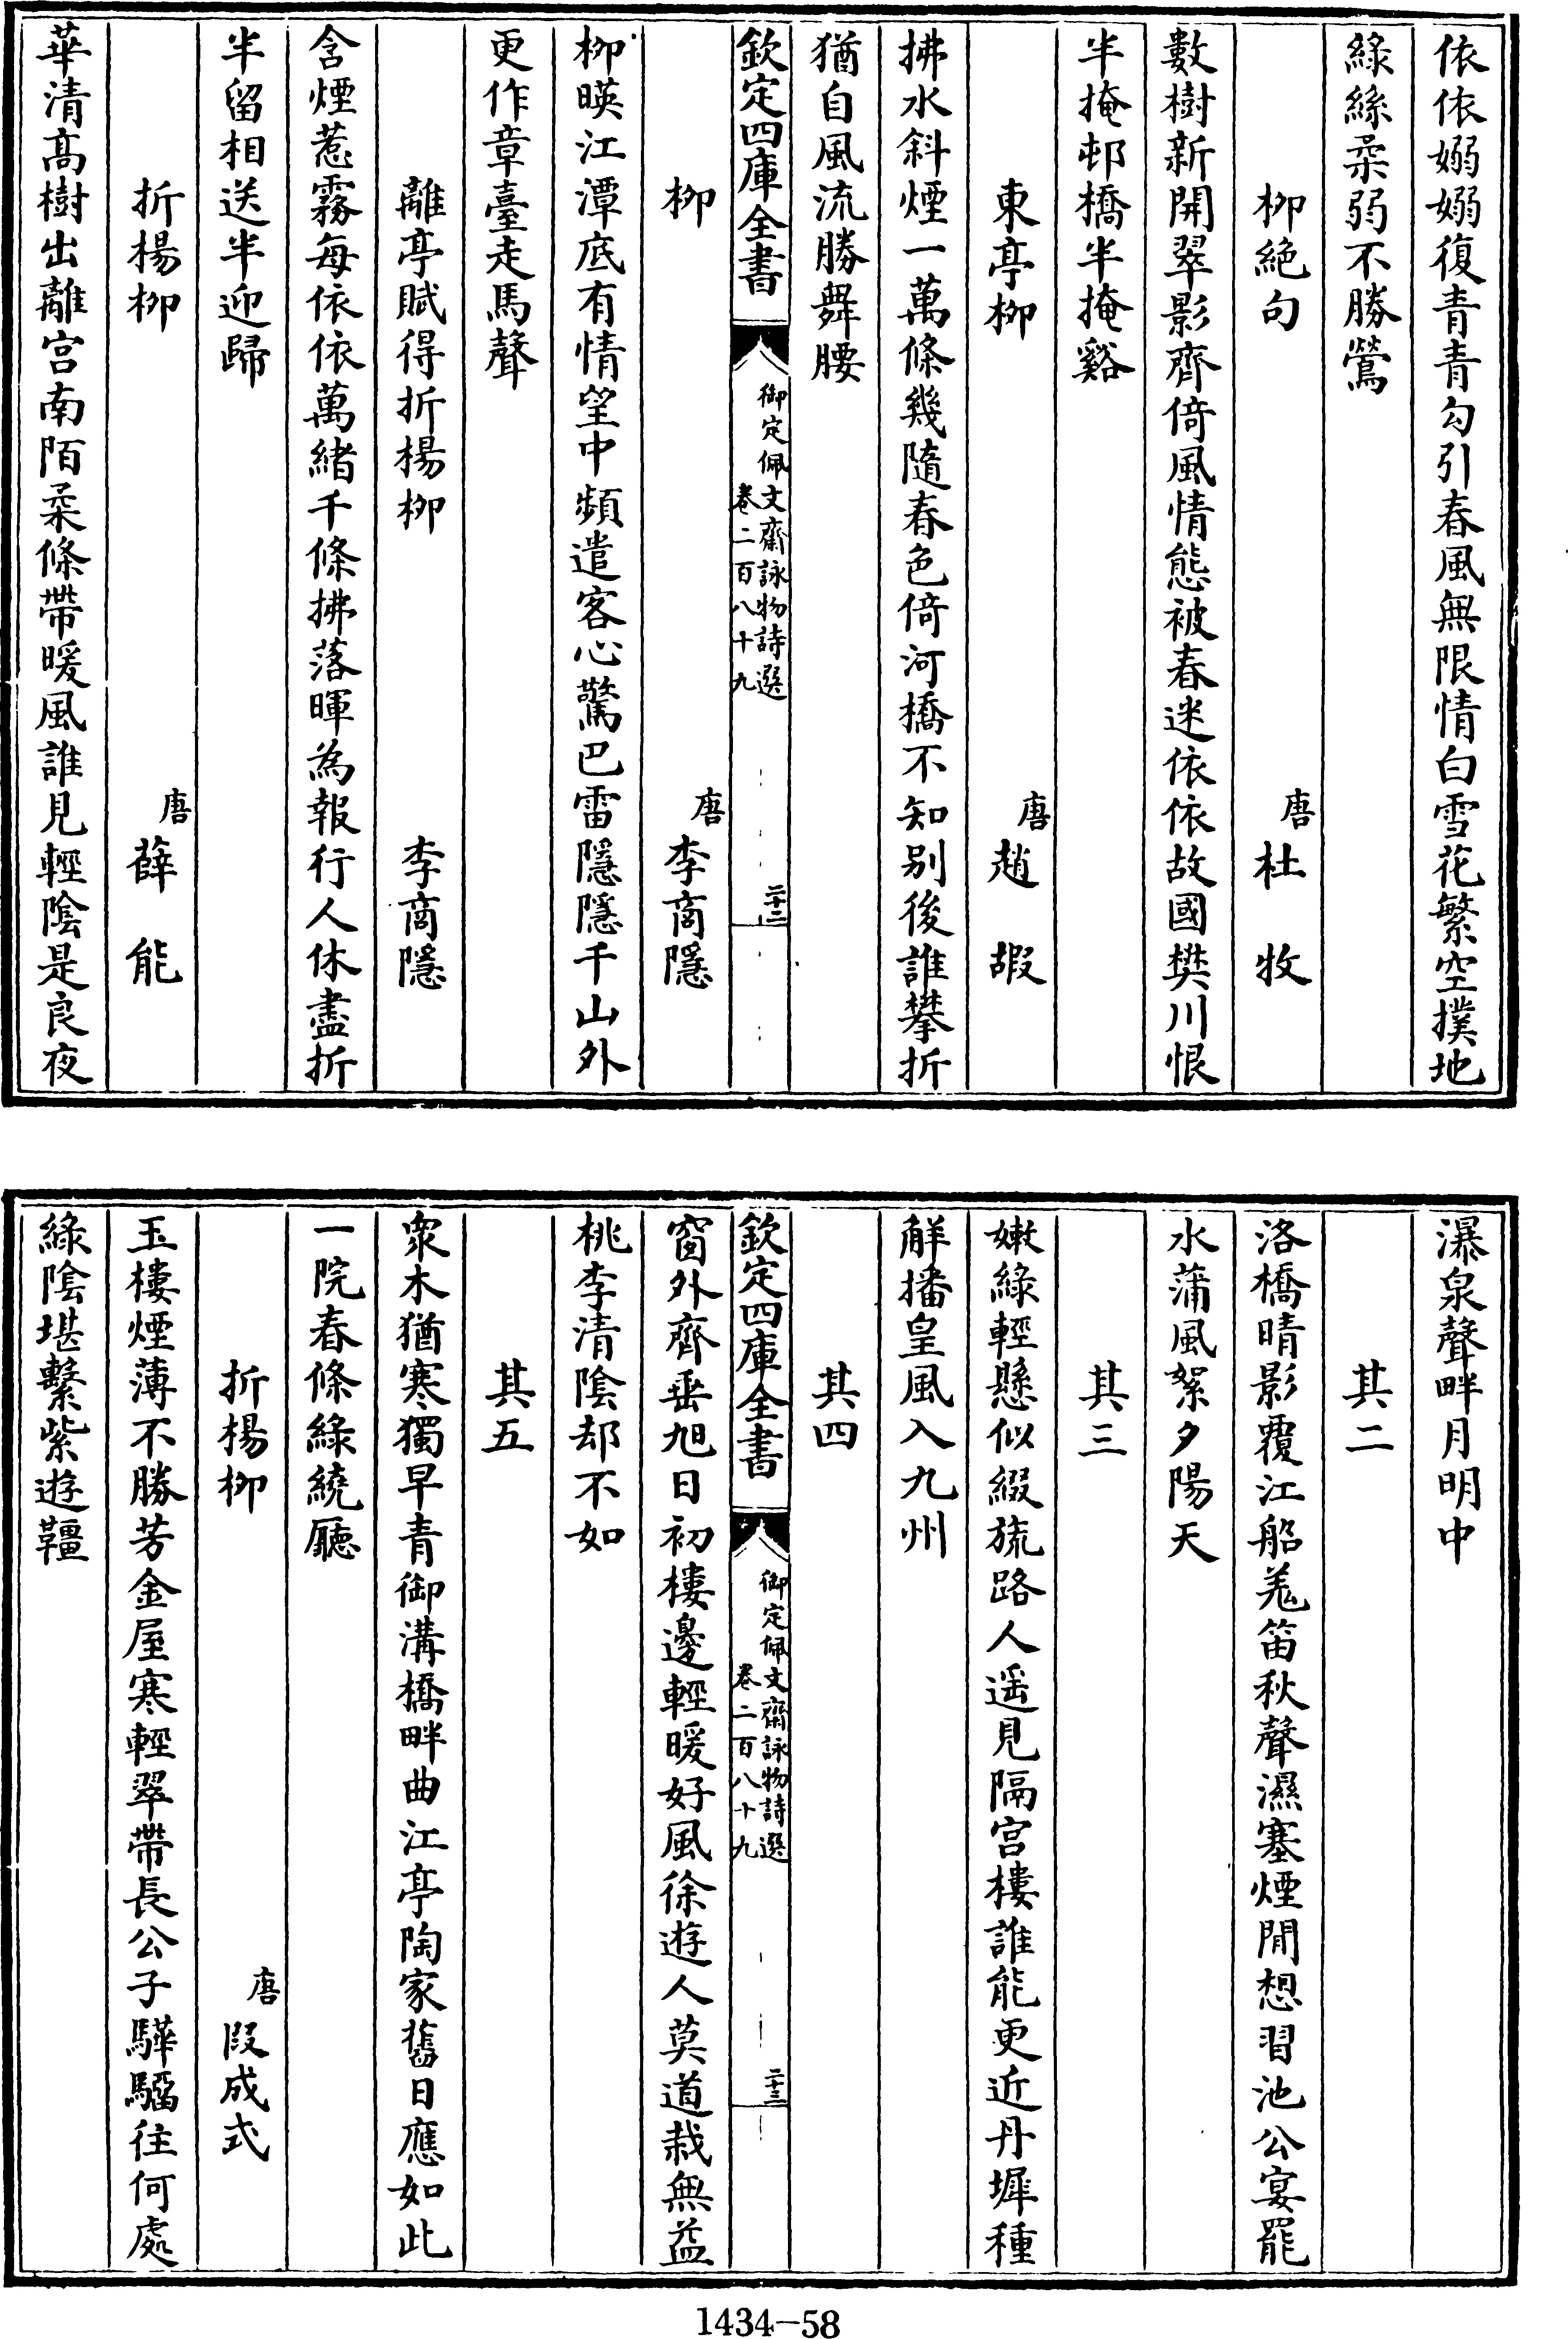 依依嫋嫋復青青勾引春風無限情白雪花繁空撲地
綠絲柔弱不勝鶯
柳絶句 唐 杜牧
數樹新開翠影齊倚風情態被春迷依依故國樊川恨
半掩邨橋半掩谿
東亭柳 唐 趙嘏
拂水斜煙一萬條幾隨春色倚河橋不知别後誰攀折
猶自風流勝舞腰
欽定四庫全書 御定佩文齋詠物詩選 卷二百八十九 二十二
柳 唐 李商隱
柳暎江潭底有情望中頻遣客心驚巴雷隱隱千山外
更作章臺走馬聲
離亭賦得折楊柳 李商隱
含煙惹霧每依依萬緒千條拂落暉為報行人休盡折
半留相送半迎歸
折楊柳 唐 薛能
華清高樹出離宫南陌柔條帶暖風誰見輕陰是良夜
瀑泉聲畔月明中
其二
洛橋晴影覆江船羗笛秋聲濕塞煙閒想習池公宴罷
水蒲風絮夕陽天
其三
嫩綠輕懸似綴旒路人遥見隔宫樓誰能更近丹墀種
解播皇風入九州
其四
欽定四庫全書 御定佩文齋詠物詩選 卷二百八十九 二十三
窗外齊垂旭日初樓邊輕暖好風徐遊人莫道栽無益
桃李清陰却不如
其五
衆木猶寒獨早青御溝橋畔曲江亭陶家舊日應如此
一院春條綠繞廳
折楊柳 唐 段成式
玉樓煙薄不勝芳金屋寒輕翠帶長公子驊騮往何處
綠陰堪繫紫遊韁
1434-58